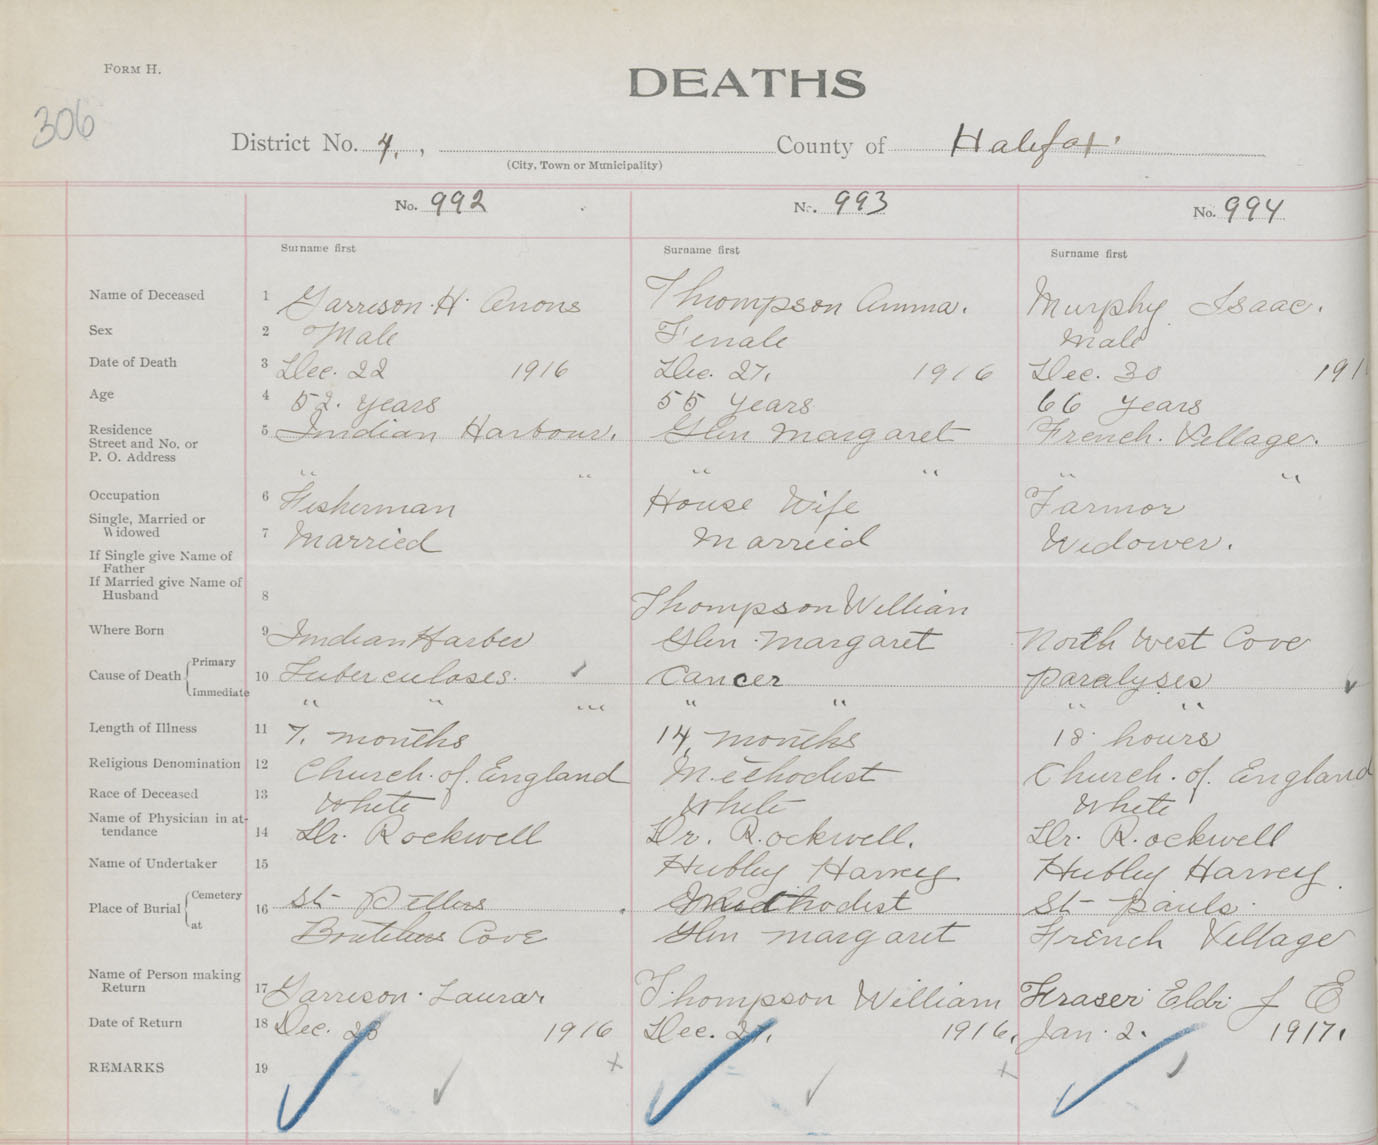 FORM H.
DEATHS
306
District No. 4. , County of Halifax.
(City, Town or Municipality)
No. 992 No. 993 No. 994
Surname first Surname first Surname first
Name of Deceased 1 Garrison. H. Anons Thompson Amma. Murphy Isaac.
Sex 2 Male Female Male
Date of Death 3 Dec. 22 1916 Dec. 27, 1916 Dec. 30 191
Age 4 52. years 55 years 66 years
Residence 5 Indian Harbour. Glen Margaret French. Village.
Street and No. or
P. O. Address
" " " " " "
Occupation 6 Fisherman House Wife Farmor
Single, Married or
Widowed 7 Married Married Widower.
If Single give Name of
Father
If Married give Name of
Husband 8 Thompson Willian
Where Born 9 Indian Harber Glen. Margaret North West Cove
Primary
Cause of Death 10 Tuberculoses. Cancer Paralyses
Immediate " " " " " " "
Length of Illness 11 7. months 14, months 18 hours
Religious Denomination 12 Church. of. England Methodist Church. of. England
Race of Deceased 13 White White White
Name of Physician in at-
tendance 14 Dr. Rockwell Dr. Rockwell. Dr. Rockwell
Name of Undertaker 15 Hubley Harvey Hubley Harvey.
Cemetery
Place of Burial 16 St- Petters Methodist St- Pauls.
at Cove Glen margaret French Village
Name of Person making
Return 17 Garrison. Laura. Thompson William Fraser Eldr J E
Date of Return 18 Dec. 23 1916 Dec. 27, 1916. Jan. 2. 1917.
REMARKS 19